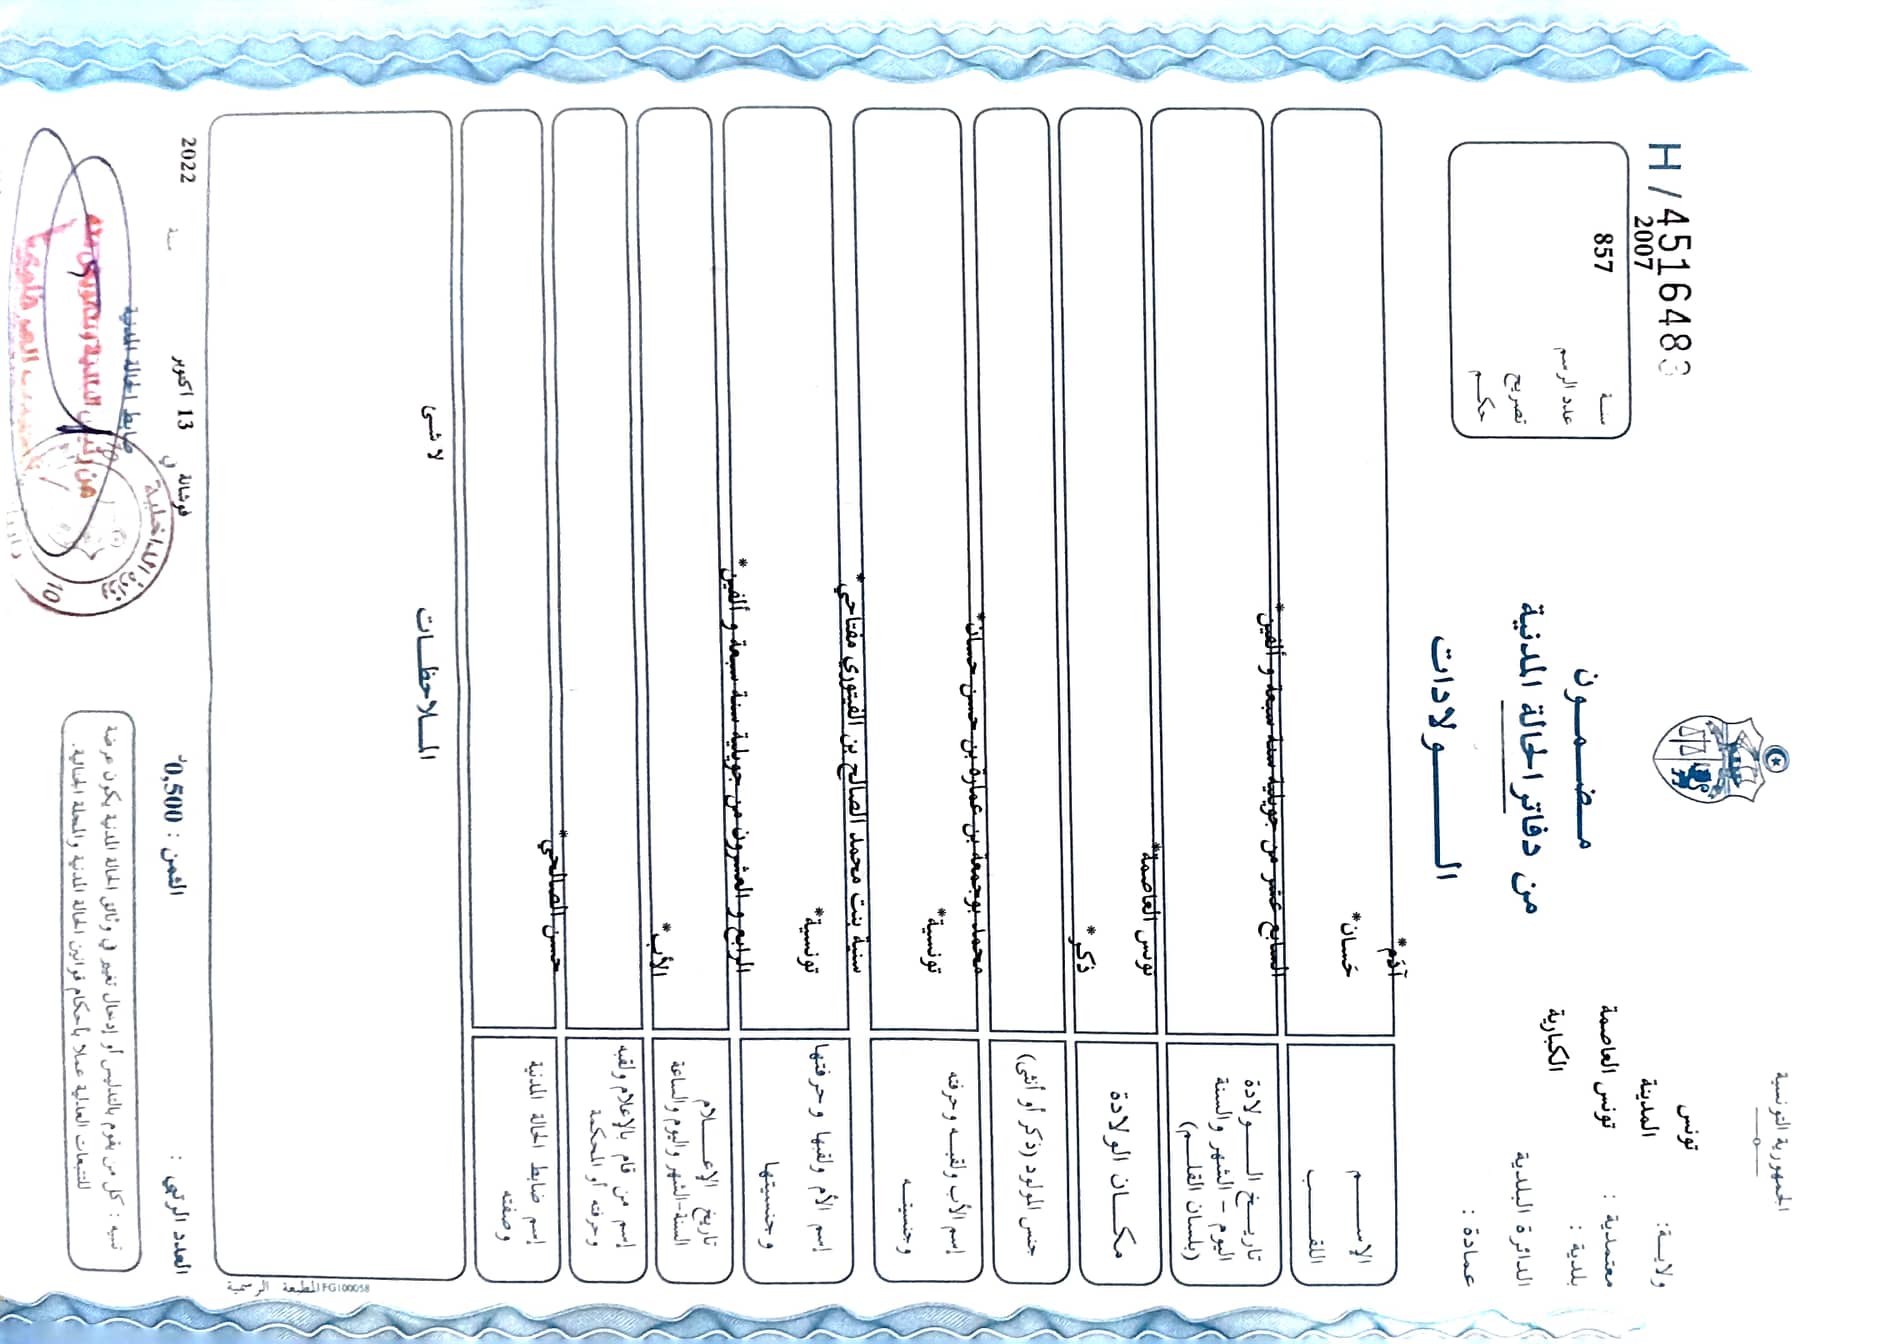 الجمهورية التونسية
H/4516483
ولاية: تونس
2007
معتمدية : المدينة
سنة
857
بلدية : تونس العاصمة
عدد الرسم
الدائرة البلدية الكبارية
تصريح
عمادة :
حكم
مضمون
من دفاتر الحالة المدنية
الولادات
آدم*
الإسم
اللقب
حسان*
تاريخ الولادة
اليوم - الشهر والسنة
(بلسان القلم)
السابع عشر من جويلية سنة سبعة و ألفين*
مكان الولادة
تونس العاصمة*
جنس المولود (ذكر أو أنثى)
ذكر*
إسم الأب ولقبه وحرفته
وجنسيته
محمد بوجمعة بن عمارة بن حسن حسان*
تونسية*
إسم الأم ولقبها وحرفتها
وجنسيتها
سنية بنت محمد الصالح بن الفيتوري مفتاحي*
تونسية*
تاريخ الإعلام
السنة-الشهر واليوم والساعة
الرابع و العشرون من جويلية سنة سبعة و ألفين*
إسم من قام بالإعلام ولقبه
وحرفته أو المحكمة
الأب*
إسم ضابط الحالة المدنية
وصفته
حسن الصالحي*
الملاحظات
لا شئ
المطبعة الرسمية IFG100058
العدد الرتبي :
الثمن : 0,500د
فوشانة في 13 أكتوبر سنة 2022
ضابط الحالة المدنية
تنبيه : كل من يقوم بالتدليس أو إدخال تغيير في وثائق الحالة المدنية يكون عرضة
للتتبعات العدلية عملا بأحكام قوانين الحالة المدنية والمجلة الجنائية.
وزارة الداخلية
10